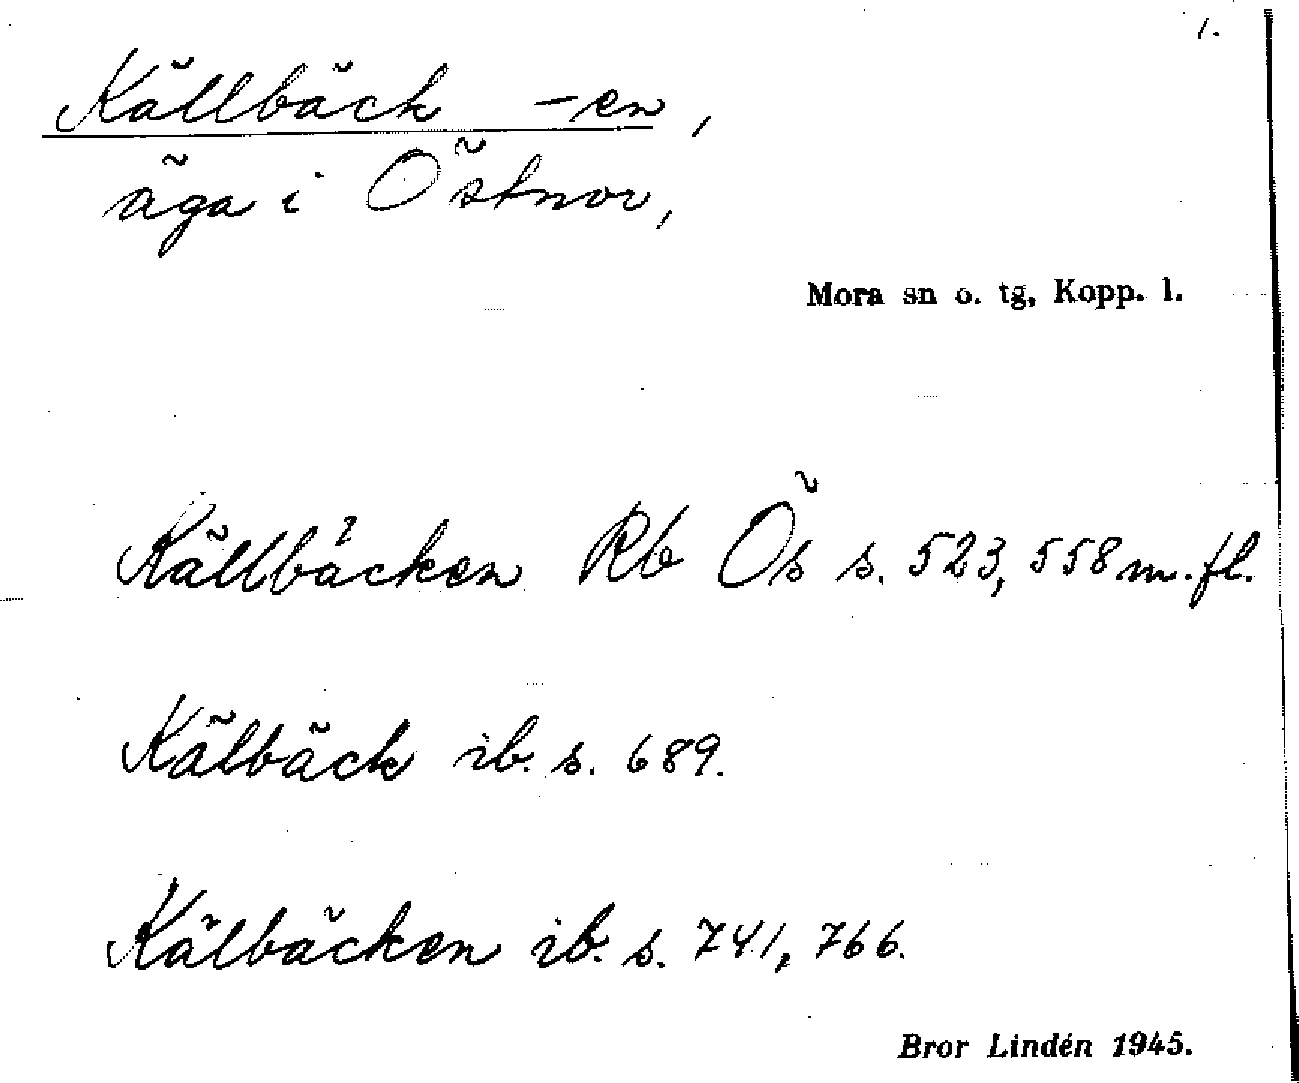 1.
Källbäck -en,
äga i Östnor,
Mora sn o. tg, Kopp. l.
Källbäcken Rb Ös s. 523, 558 m.fl.
Kälbäck ib. s. 689.
Kälbäcken ib. s. 741, 766.
Bror Lindén 1945.